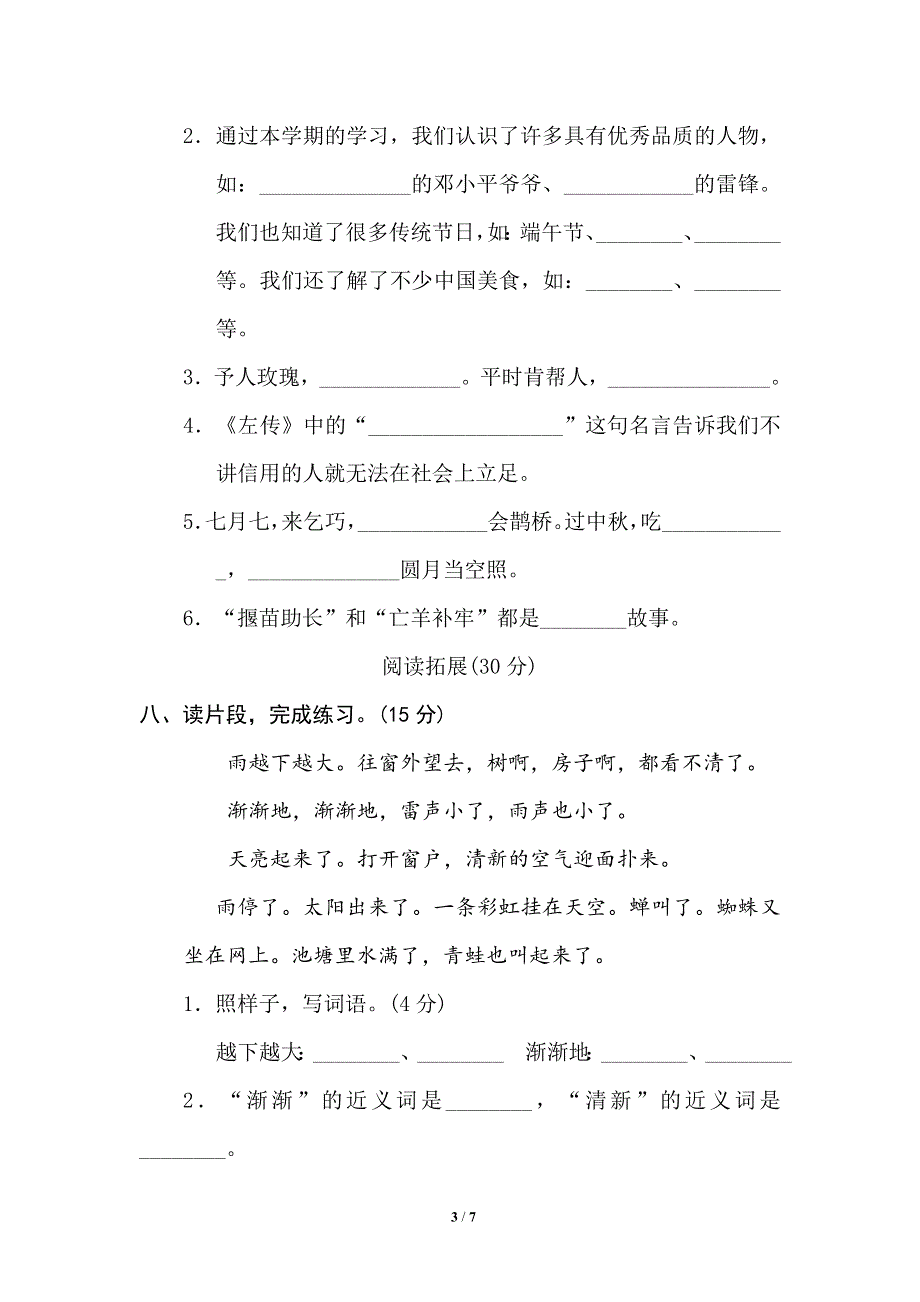 2．通过本学期的学习，我们认识了许多具有优秀品质的人物，
如：______________的邓小平爷爷、____________的雷锋。
我们也知道了很多传统节日，如：端午节、________、________
等。我们还了解了不少中国美食，如：________、________
等。
3．予人玫瑰，_____________。平时肯帮人，_______________。
4．《左传》中的“__________________”这句名言告诉我们不
讲信用的人就无法在社会上立足。
5.七月七，来乞巧，____________会鹊桥。过中秋，吃___________
_，______________圆月当空照。
6．“揠苗助长”和“亡羊补牢”都是________故事。
阅读拓展(30分)
八、读片段，完成练习。(15分)
雨越下越大。往窗外望去，树啊，房子啊，都看不清了。
渐渐地，渐渐地，雷声小了，雨声也小了。
天亮起来了。打开窗户，清新的空气迎面扑来。
雨停了。太阳出来了。一条彩虹挂在天空。蝉叫了。蜘蛛又
坐在网上。池塘里水满了，青蛙也叫起来了。
1．照样子，写词语。(4分)
越下越大：________、________ 渐渐地：________、________
2．“渐渐”的近义词是________，“清新”的近义词是
________。
3 / 7